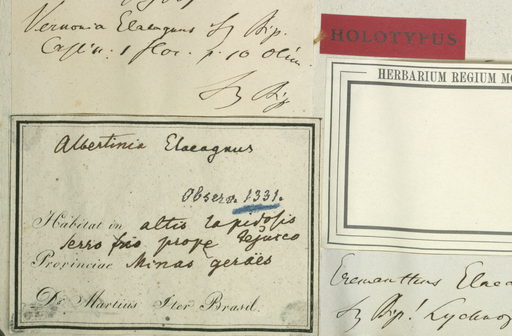 Vernonia Elaeagnus Sz Bip.
Capln. 1 flor. p. 10 Olim.
Sz Bip
HOLOTYPUS
HERBARIUM REGIUM MO
Albertinia Elaeagnus
Observ. 1331.
Habitat in altis lapidosis
Serro frio prope Tejuco
Provinciae Minas geraës
Dr. Martius Iter Brasil.
Eremanthus Elaea
Sz Bip! Lychnop